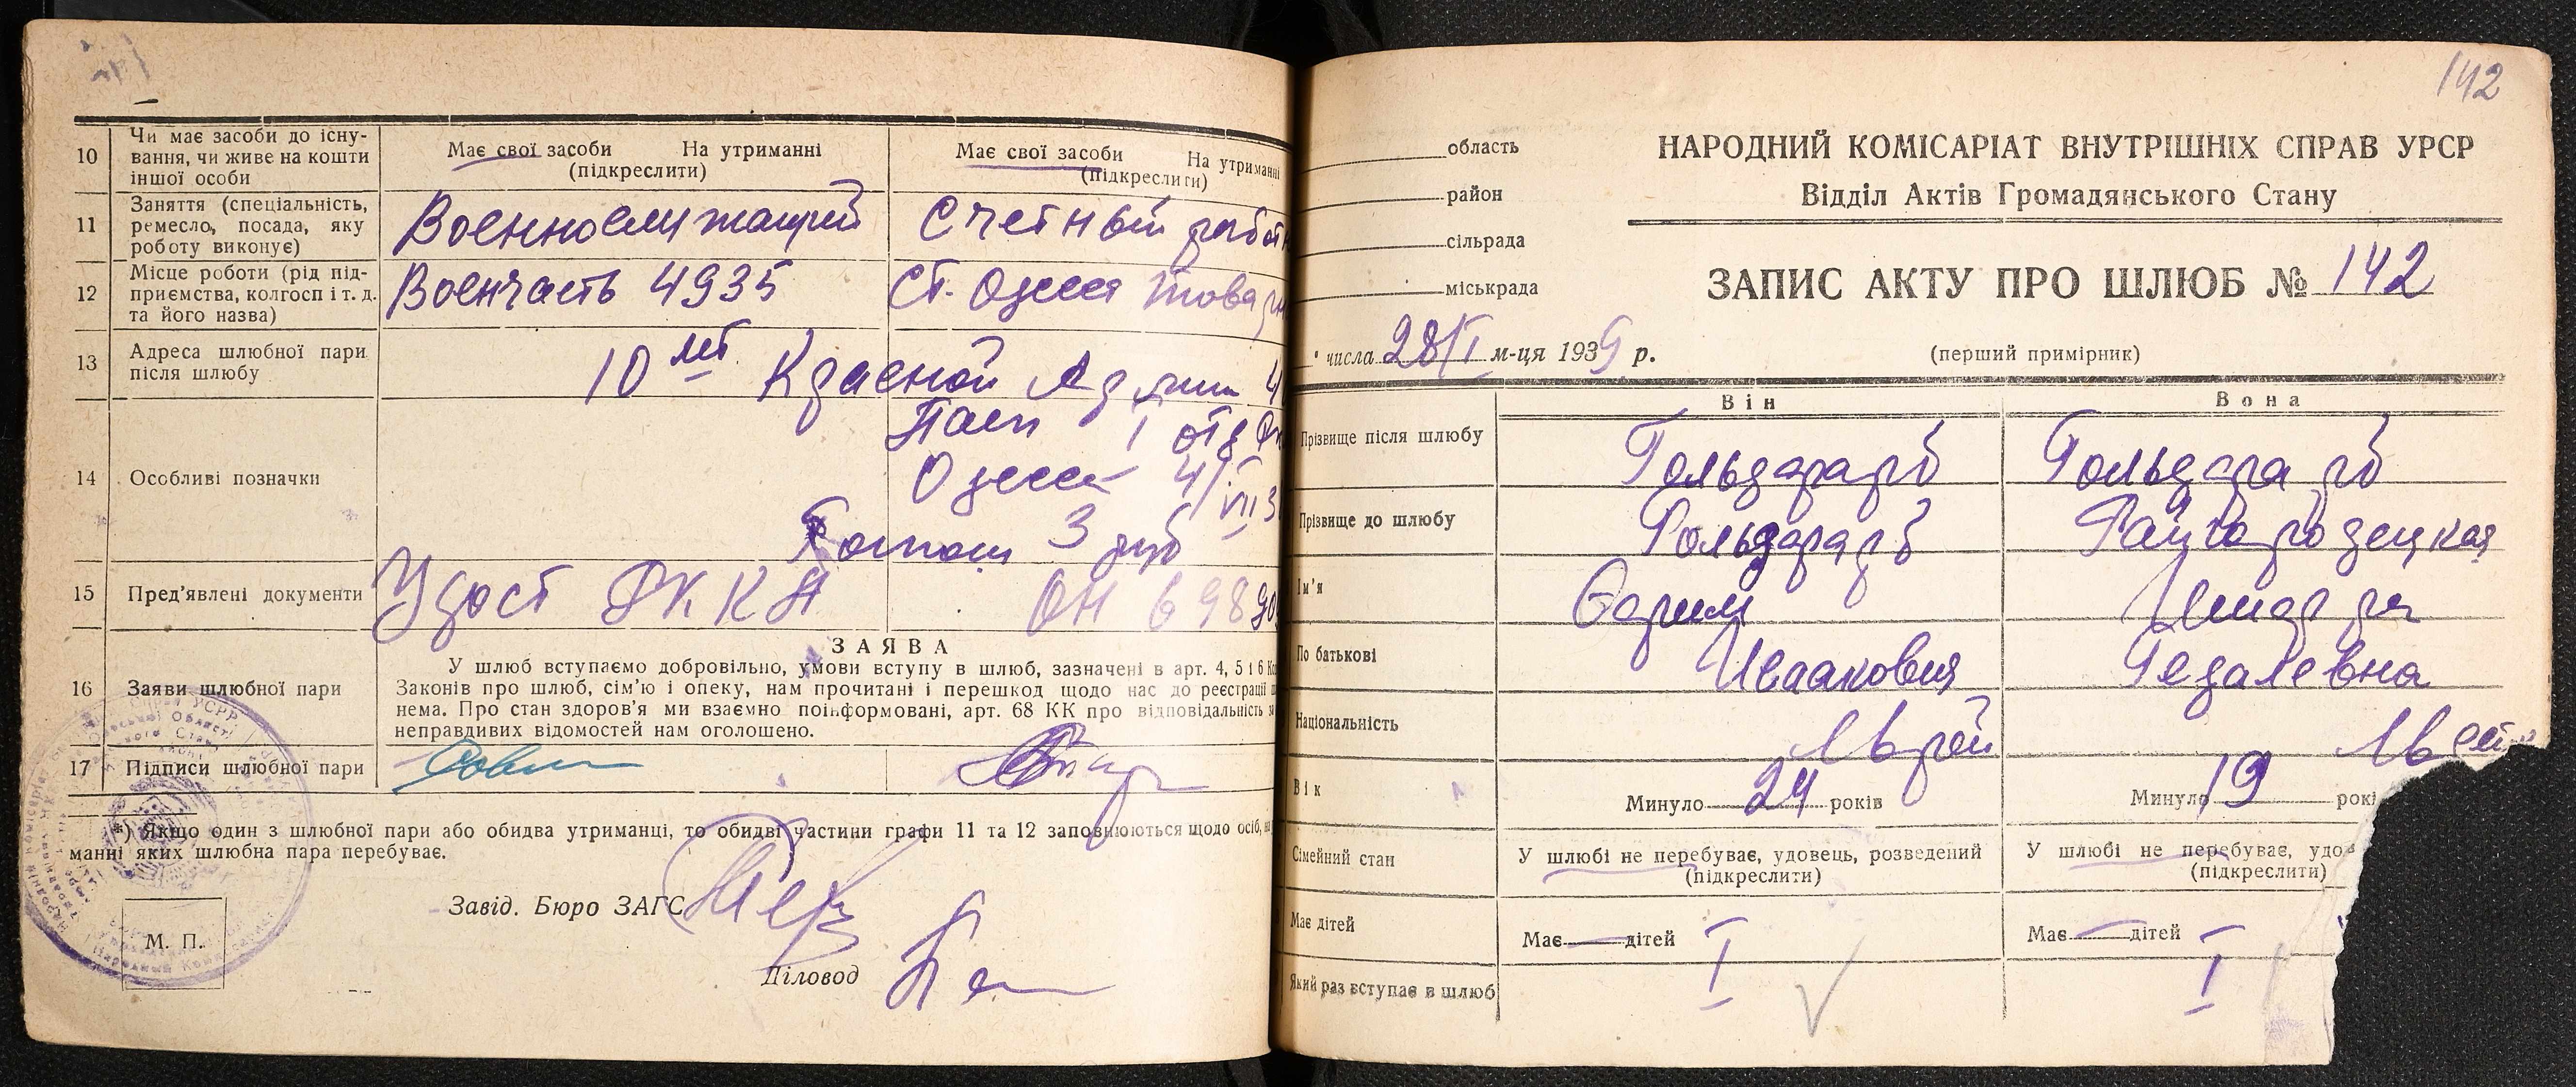 10
Чи має засоби до існу-
вання, чи живе на кошти
іншої особи
Має свої засоби На утриманні
(підкреслити)
Має свої засоби На утриманні
(підкреслити)
11
Заняття (спеціальність,
ремесло, посада, яку
роботу виконує)
Военнослужащий
Счетный работн
12
Місце роботи (рід під-
приємства, колгосп і т. д.
та його назва)
Военчасть 4935
Ст. Одесса Товарн
13
Адреса шлюбної пари
після шлюбу
10 лет Красной Армии 4
14
Особливі позначки
Пасп 1 отд
Одесса 4/VII 3
3 руб
15
Пред’явлені документи
Удост РККА
ОН 698
16
Заяви шлюбної пари
ЗАЯВА
У шлюб вступаємо добровільно, умови вступу в шлюб, зазначені в арт. 4, 5 і 6 Ко
Законів про шлюб, сім’ю і опеку, нам прочитані і перешкод щодо нас до реєстрації
нема. Про стан здоров’я ми взаємно поінформовані, арт. 68 КК про відповідальність з
неправдивих відомостей нам оголошено.
17
Підписи шлюбної пари
*) Якщо один з шлюбної пари або обидва утриманці, то обидві частини графи 11 та 12 заповнюються щодо осіб, на
манні яких шлюбна пара перебуває.
Завід. Бюро ЗАГС
М. П.
Діловод
142
область
район
сільрада
міськрада
НАРОДНИЙ КОМІСАРІАТ ВНУТРІШНІХ СПРАВ УРСР
Відділ Актів Громадянського Стану
ЗАПИС АКТУ ПРО ШЛЮБ № 142
числа 28/I м-ця 1939 р.
(перший примірник)
Він
Вона
Прізвище після шлюбу
Гольдфарб
Гольдфарб
Прізвище до шлюбу
Гольдфарб
Райгородецкая
Ім’я
По батькові
Исаакович
Гедалевна
Національність
Еврей
Вік
Минуло 24 років
Минуло 19 рокі
Сімейний стан
У шлюбі не перебуває, удовець, розведений
(підкреслити)
У шлюбі не перебуває, удов
(підкреслити)
Має дітей
Має — дітей
Має — дітей
Який раз вступає в шлюб
I
I